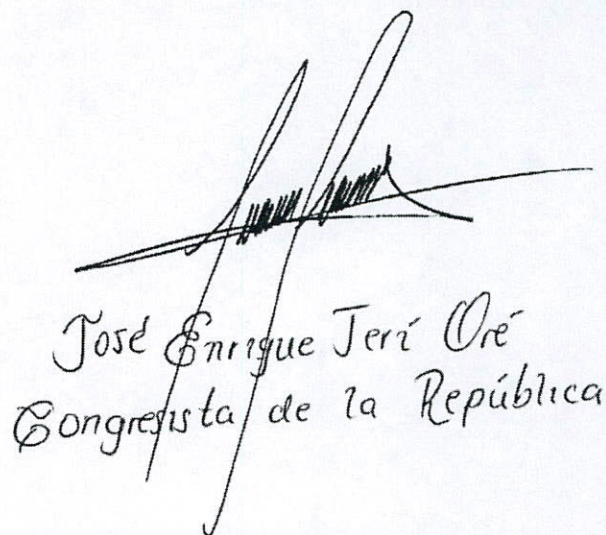 José Enrique Jerí Oré
Congresista de la República